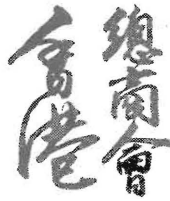 香港
總商會